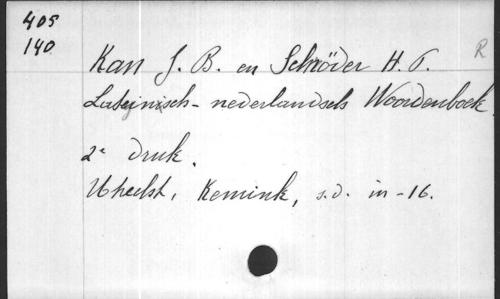 405
140
R
Kan J. B. en Schröder H. P.
Latijnisch - nederlandsch Woordenboek.
2e druk.
Utrecht, Kemink, s.d. in-16.